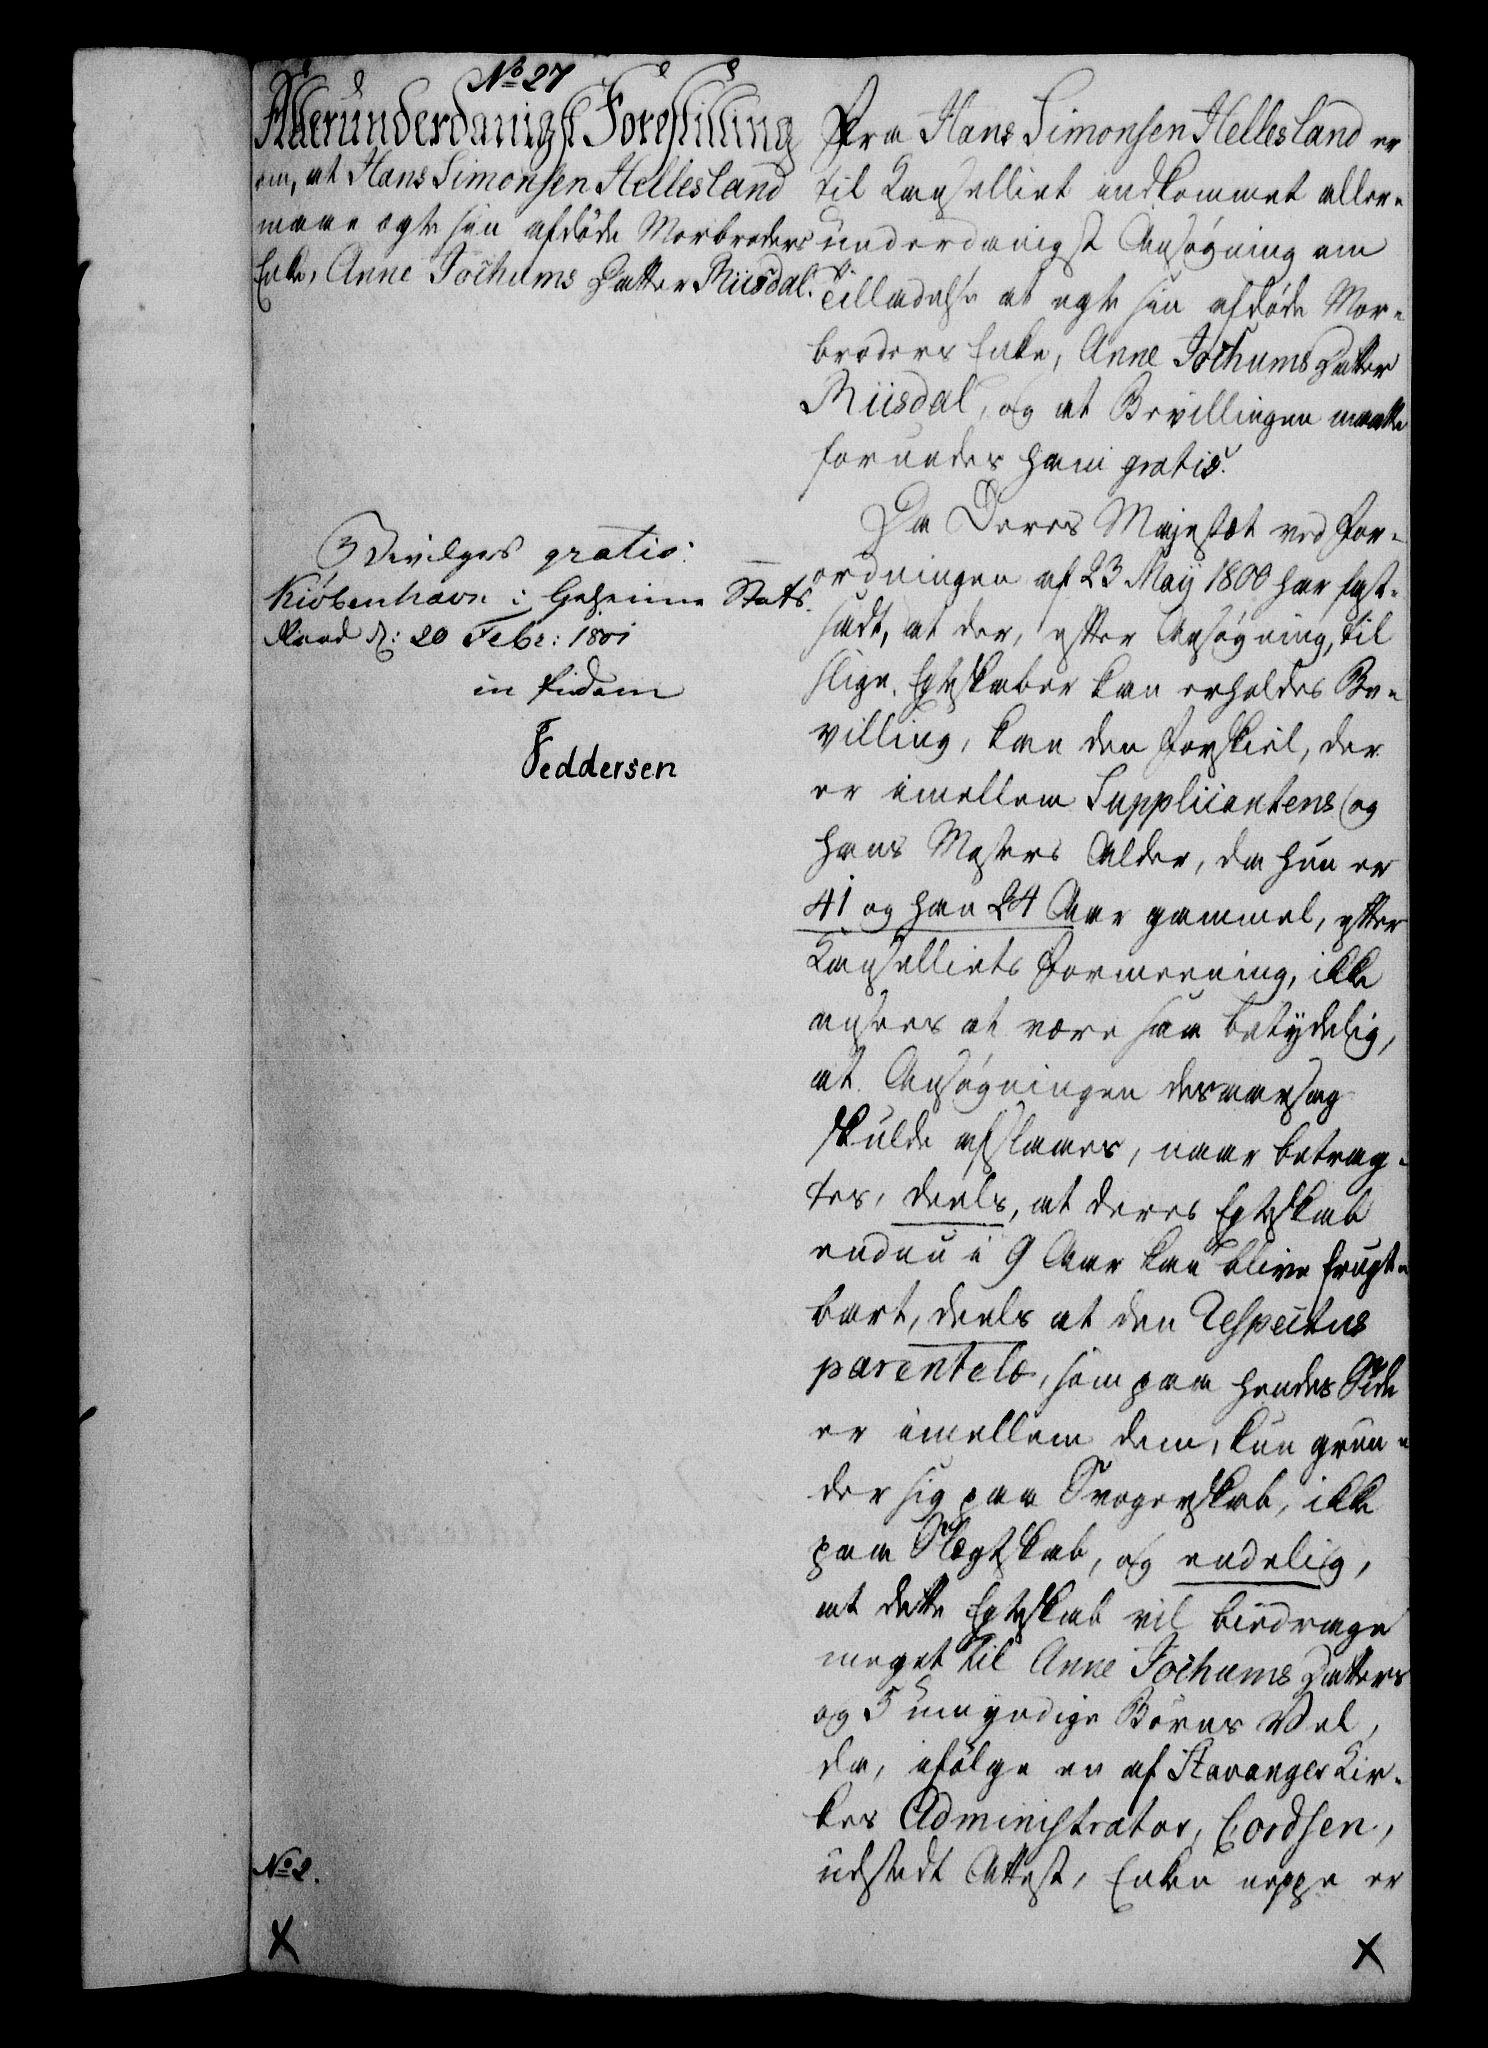 No 27
Allerunderdanigst Forestilling
om, at Hans Simonsen Hellesland
maae egte sin afdøde Morbroders
Enke, Anne Jochums Datter Riisdal.
Bevilges gratis.
Kiöbenhavn i Geheime Stats
Raad d: 20 Febr: 1801
in fidem
Feddersen
No 2.
Fra Hans Simonsen Hellesland er
til Kancelliet indkommet aller-
underdanigst Ansøgning om
Tilladelse at egte sin afdøde Mor-
broders Enke, Anne Jochums Datter
Riisdal, og at Bevillingen maatte
forundes ham gratis.
Da Deres Majestæt ved For-
ordningen af 23 May 1800 har fast-
sadt, at der, efter Ansøgning, til
slige Egteskaber kan erholdes Be-
villing, kan den Forskiel, der
er imellem Supplicantens og
hans Mosters Alder, da hun er
41 og han 24 Aar gammel, efter
Kancelliets Formeening, ikke
ansees at være saa betydelig,
at Ansøgningen desaarsag
skulde afslaaes, naar betrag-
tes, deels, at deres Egteskab
endnu i 9 Aar kan blive frugt-
bart, deels at den Respectus
parentelæ, som paa hendes Side
er imellem dem, kun grun-
der sig paa Svogerskab, ikke
paa Slægtskab, og endelig,
at dette Egteskab vil bidrage
meget til Anne Jochums Datters
og 5 umyndige Børns Vel,
da, ifølge en af Stavanger Kir-
kes Administrator, Cordsen,
udstedt Attest, Enken neppe er